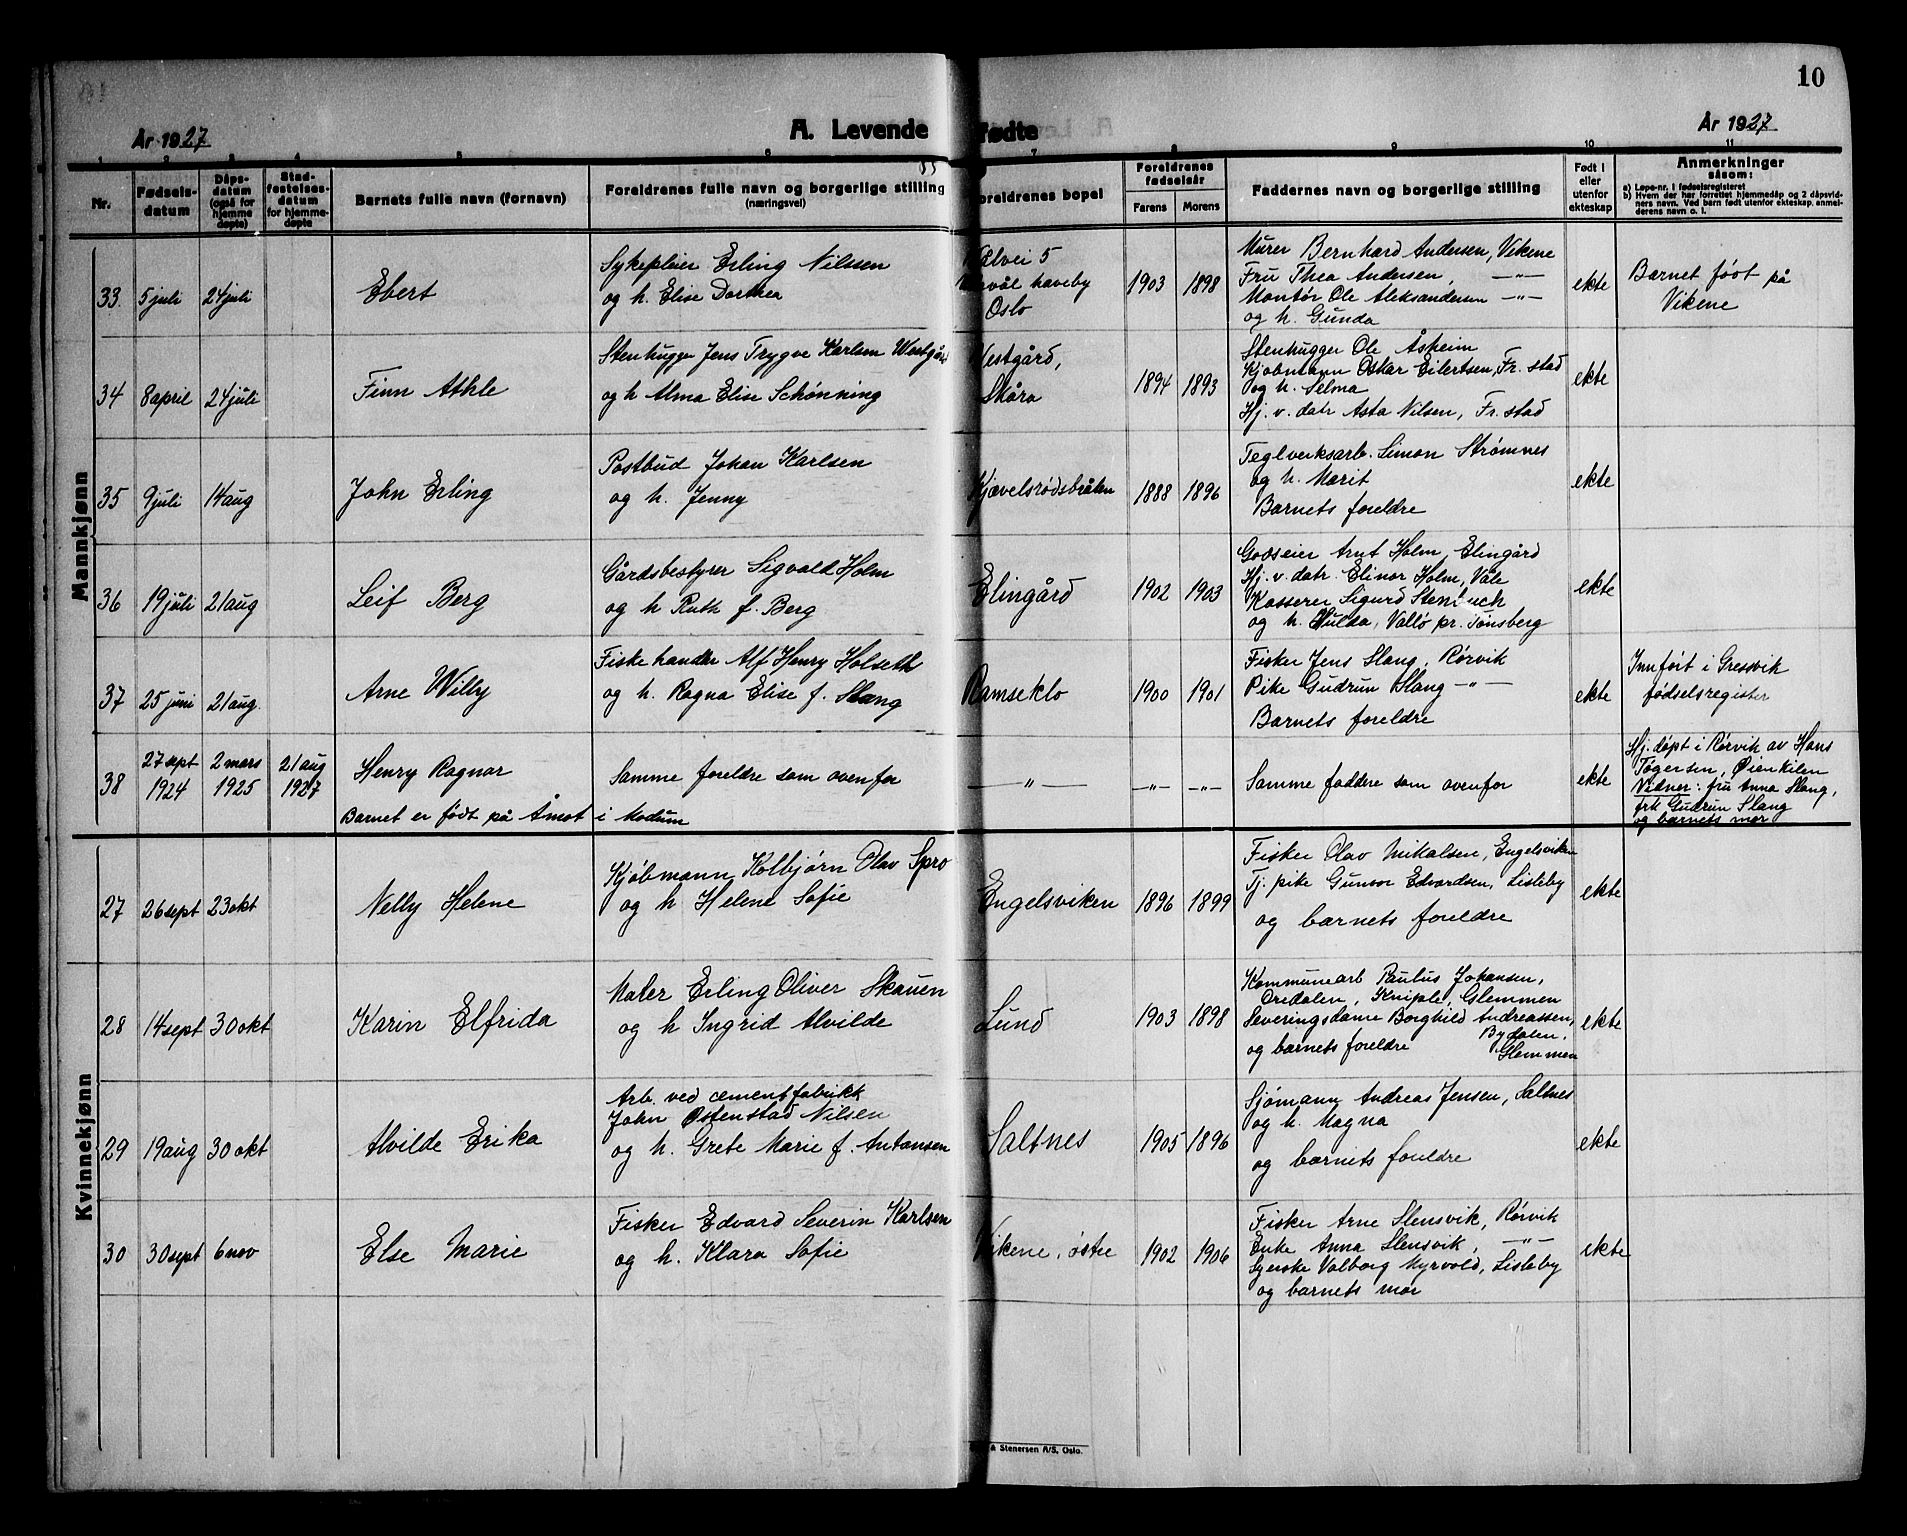 10
År 1927
A. Levende fødte
År 1927
1 2 3 4 5 6 7 8 9 10 11
Nr.
Fødsels-
datum
Dåps-
datum
(også for
hjemme
døpte)
Stad-
festelses-
datum
for hjemme-
døpte
Barnets fulle navn (fornavn)
Foreldrenes fulle navn og borgerlige stilling
(næringsvei)
Foreldrenes bopel
Foreldrenes
fødselsår
Farens Morens
Faddernes navn og borgerlige stilling
Født i
eller
utenfor
ekteskap
Anmerkninger
såsom:
a) Løpe-nr. i fødselsregisteret
b) Hvem der har forrettet hjemmedåp og 2 dåpsvid-
ners navn. Ved barn født utenfor ekteskap, anmel-
derens navn o. l.
Mannkjønn
33. 5 juli 24 juli
Ebert
Sykepleier Erling Nilssen
og h. Elise Dorthea
vei 5
haveby
Oslo
1903 1898
Murer Bernhard Andersen, Vikene
Fru Thea Andersen, —"—
Montør Ole Aleksandersen —"—
og h. Gunda
ekte
Barnet født på
Vikene
34 8 april 24 juli
Finn Athle
Stenhugger Jens Trygve Karlsen Westgård
og h Alma Elise Schønning
Westgård,
Skåra
1894 1893
Stenhugger Ole Åsheim
Kjøbmann Oskar Eilertsen, Fr. stad
og h. Selma
Hj. v. datr Asta Nilsen, Fr. stad
ekte
35 9 juli 14 aug
John Erling
Postbud Johan Karlsen
og h. Jenny
Kjævelsrødsbråten
1888 1896
Teglverksarb. Simon Strømnes
og h. Marit
Barnets foreldre
ekte
36 19 juli 21 aug
Leif Berg
Gårdsbestyrer Sigvald Holm
og h Ruth f. Berg
Elingård
1902 1903
Godseier Arnt Holm, Elingård
Hj. v. datr. Elinor Holm, Våle
Kasserer Sigurd
og h. Hulda, Vallø pr. Tønsberg
ekte
37 25 juni 21 aug.
Arne Willy
Fiskehandler Alf Henry Holseth
og h. Ragna Elise f. Slang
Ramseklo
1900 1901
Fisker Jens Slang, Rørvik
Pike Gudrun Slang —"—
Barnets foreldre
ekte
Innført i Gressvik
fødselsregister
38 27 sept 1924 2 mars 1925 21 aug 1927
Henry Ragnar
Barnet er født på Åmot i Modum
Samme foreldre som ovenfor
—"—
—"— —"—
Samme faddere som ovenfor
ekte
Hj. døpt i Rørvik av Hans
Tøgersen, Øienkilen
Vidner: fru Anna Slang,
frk Gudrun Slang
og barnets mor
Kvinnekjønn
27 26 sept 23 okt
Nelly Helene
Kjøbmann Kolbjørn Olav Spro
og h Helene Sofie
Engelsviken
1896 1899
Fisker Olav Mikalsen, Engelsviken
Tj. pike Gunvor Edvardsen, Lisleby
og barnets foreldre
ekte
28 14 sept 30 okt
Karin Elfrida
Maler Erling Oliver Skauen
og h Ingrid Alvilde
Lund
1903 1898
Kommunearb Paulus Johansen,
Oredalen, Kniple, Glemmen
Severingsdame Borghild Andreassen,
og barnets foreldre Bydalen,
Glemmen
ekte
29 19 aug 30 okt
Alvilde Erika
Arb. ved cementfabrikk
John Østenstad Nilsen
og h. Grete Marie f. Antonsen
Saltnes
1905 1896
Sjømann Andreas Jensen, Saltnes
og h. Magna
og barnets foreldre
ekte
30 30 sept 6 nov
Else Marie
Fisker Edvard Severin Karlsen
og h. Klara Sofie
Vikene, østre
1902 1906
Fisker Arne Slensvik, Rørvik
Enke Anna Slensvik, —"—
Syerske Valborg Myrvold, Lisleby
og barnets mor
ekte
& Stenersen A/S, Oslo.